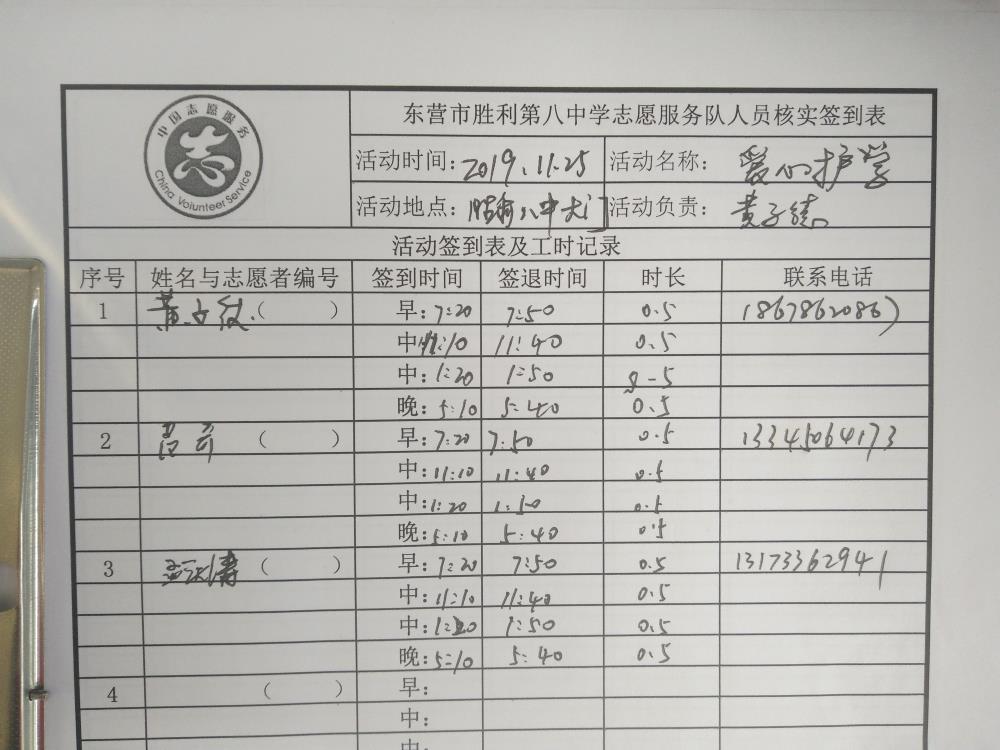 中国志愿服务
志
China Volunteer Service
东营市胜利第八中学志愿服务队人员核实签到表
活动时间：2019.11.25 活动名称：爱心护学
活动地点：胜利八中大门 活动负责：
活动签到表及工时记录
序号 姓名与志愿者编号 签到时间 签退时间 时长 联系电话
1 （ ） 早：7:20 7:50 0.5 18678620867
中：11:10 11:40 0.5
中：1:20 1:50 0.5
晚：5:10 5:40 0.5
2 （ ） 早：7:20 7:50 0.5 13345064173
中：11:10 11:40 0.5
中：1:20 1:50 0.5
晚：5:10 5:40 0.5
3 （ ） 早：7:20 7:50 0.5 13173362941
中：11:10 11:40 0.5
中：1:20 1:50 0.5
晚：5:10 5:40 0.5
4 （ ） 早：
中：
中：